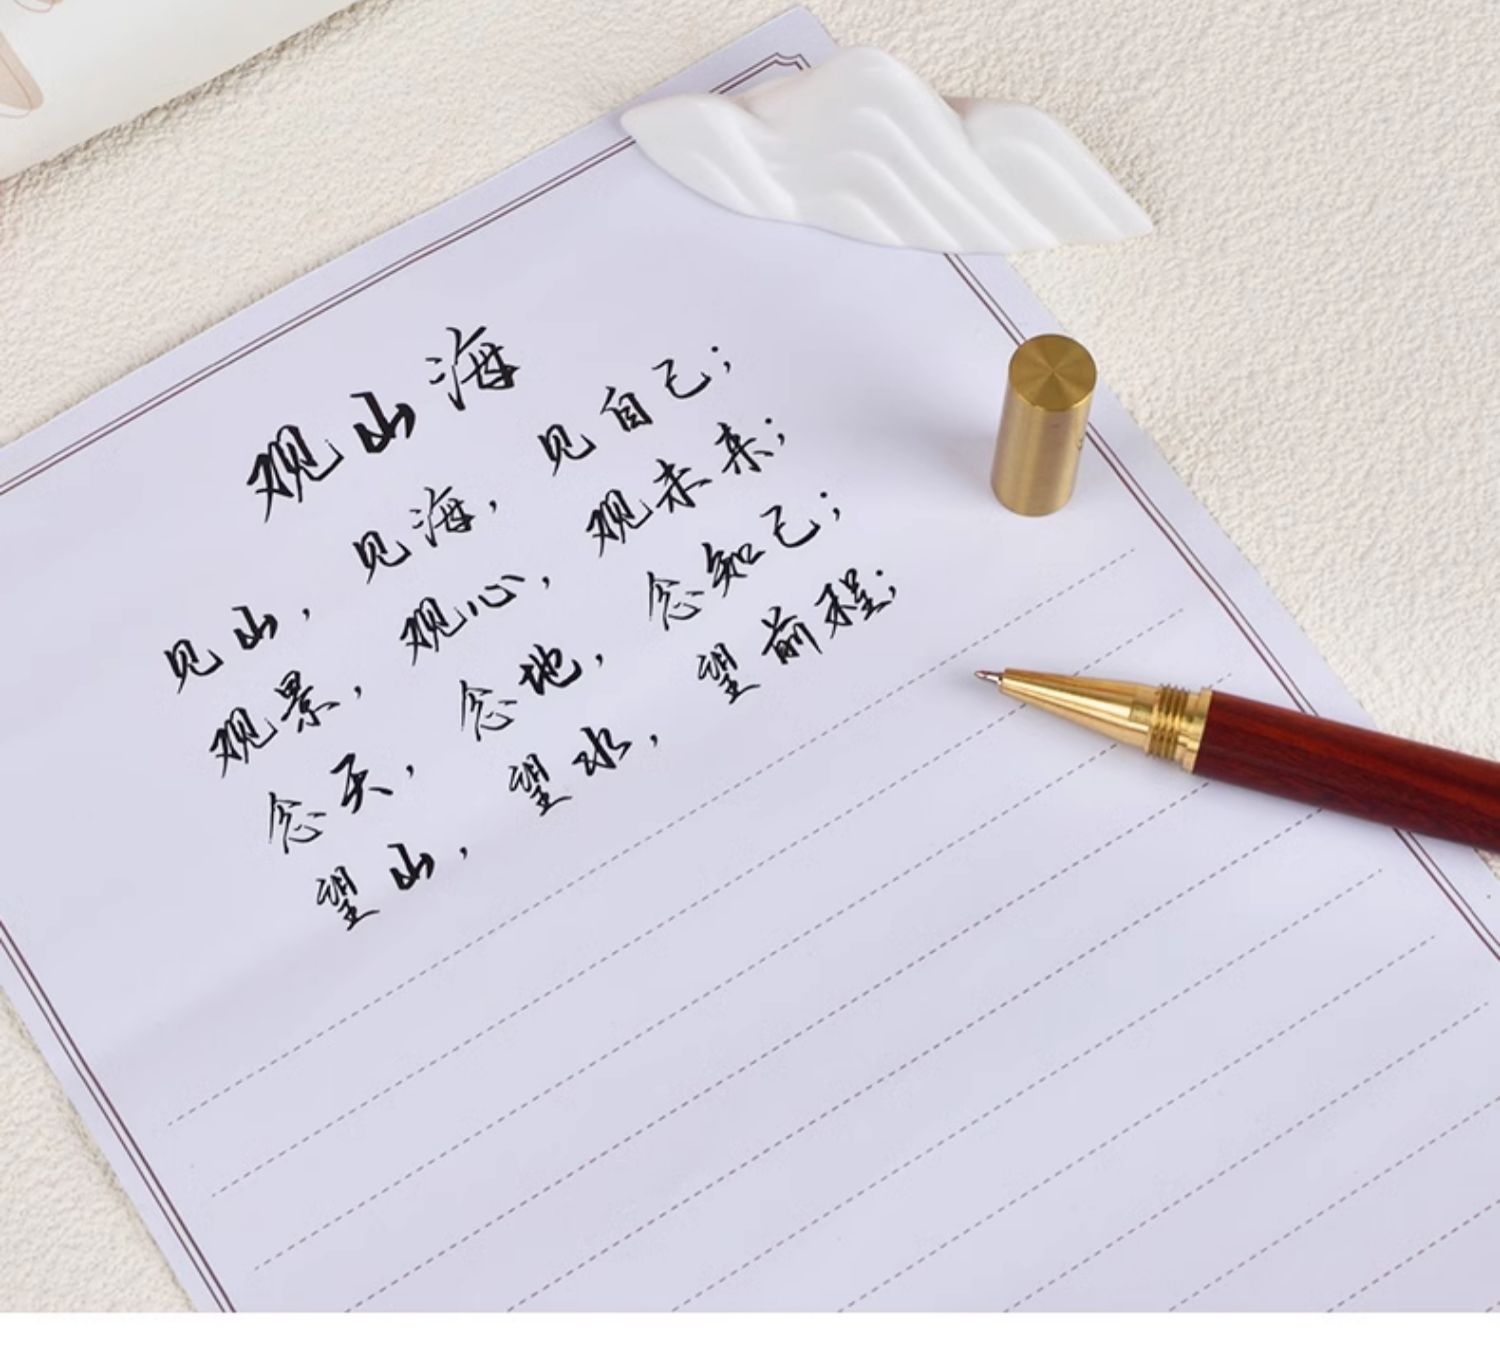 观山海
见山，见海，见自己；
观景，观心，观未来；
念天，念地，念知己；
望山，望水，望前程；